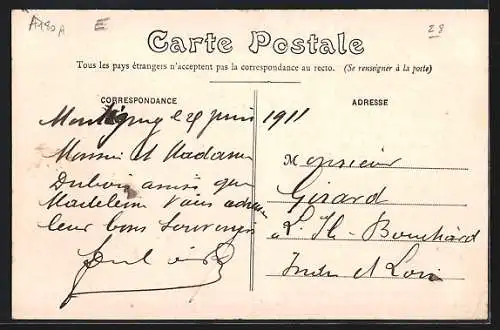 A190A E 28
Carte Postale
Tous les pays étrangers n'acceptent pas la correspondance au recto. (Se renseigner à la poste)
CORRESPONDANCE
Montigny le 29 juin 1911
Monsieur et Madame
Dubois ainsi que
Madeleine vous adressen
leur bons Souvenirs
ADRESSE
Monsieur
Girard
à L'Ile Bouchard
Indre et Loire